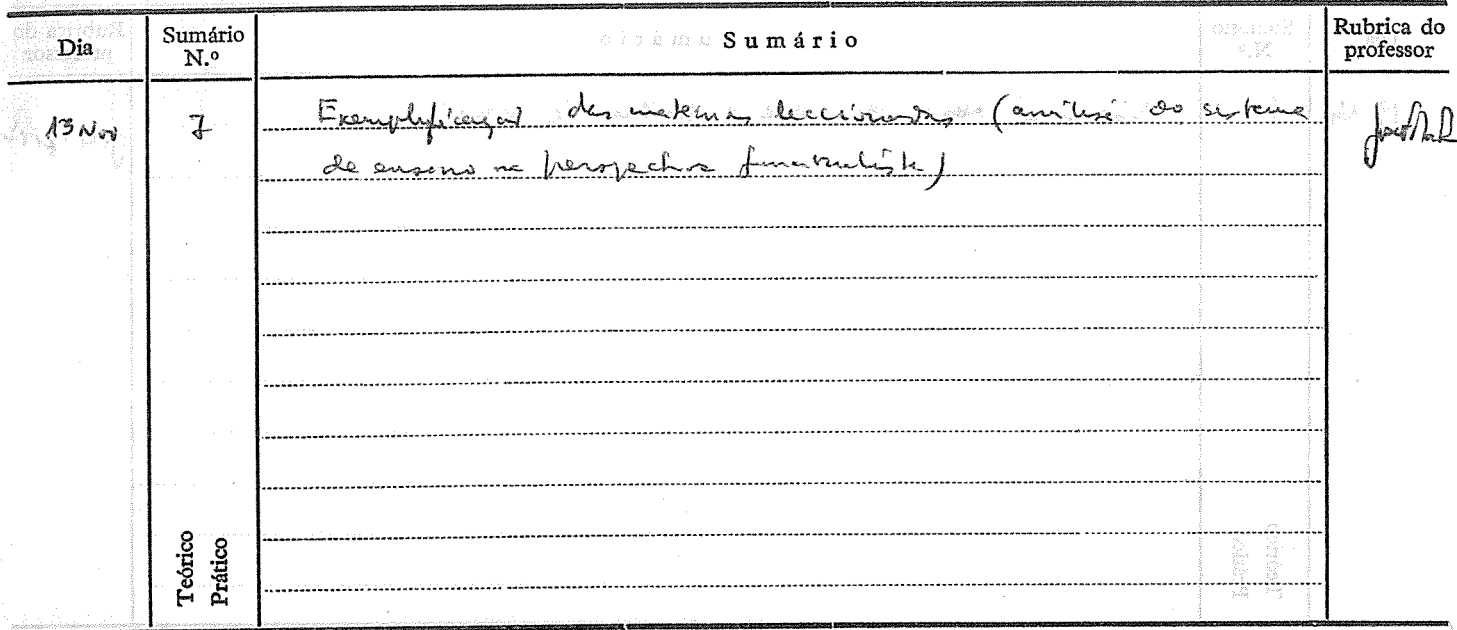 Dia
Sumário
N.º
Sumário
Rubrica do
professor
13 Nov
7
Exemplificação das matérias leccionadas (análise do sistema
de ensino na perspectiva funcionalista)
Teórico
Prático